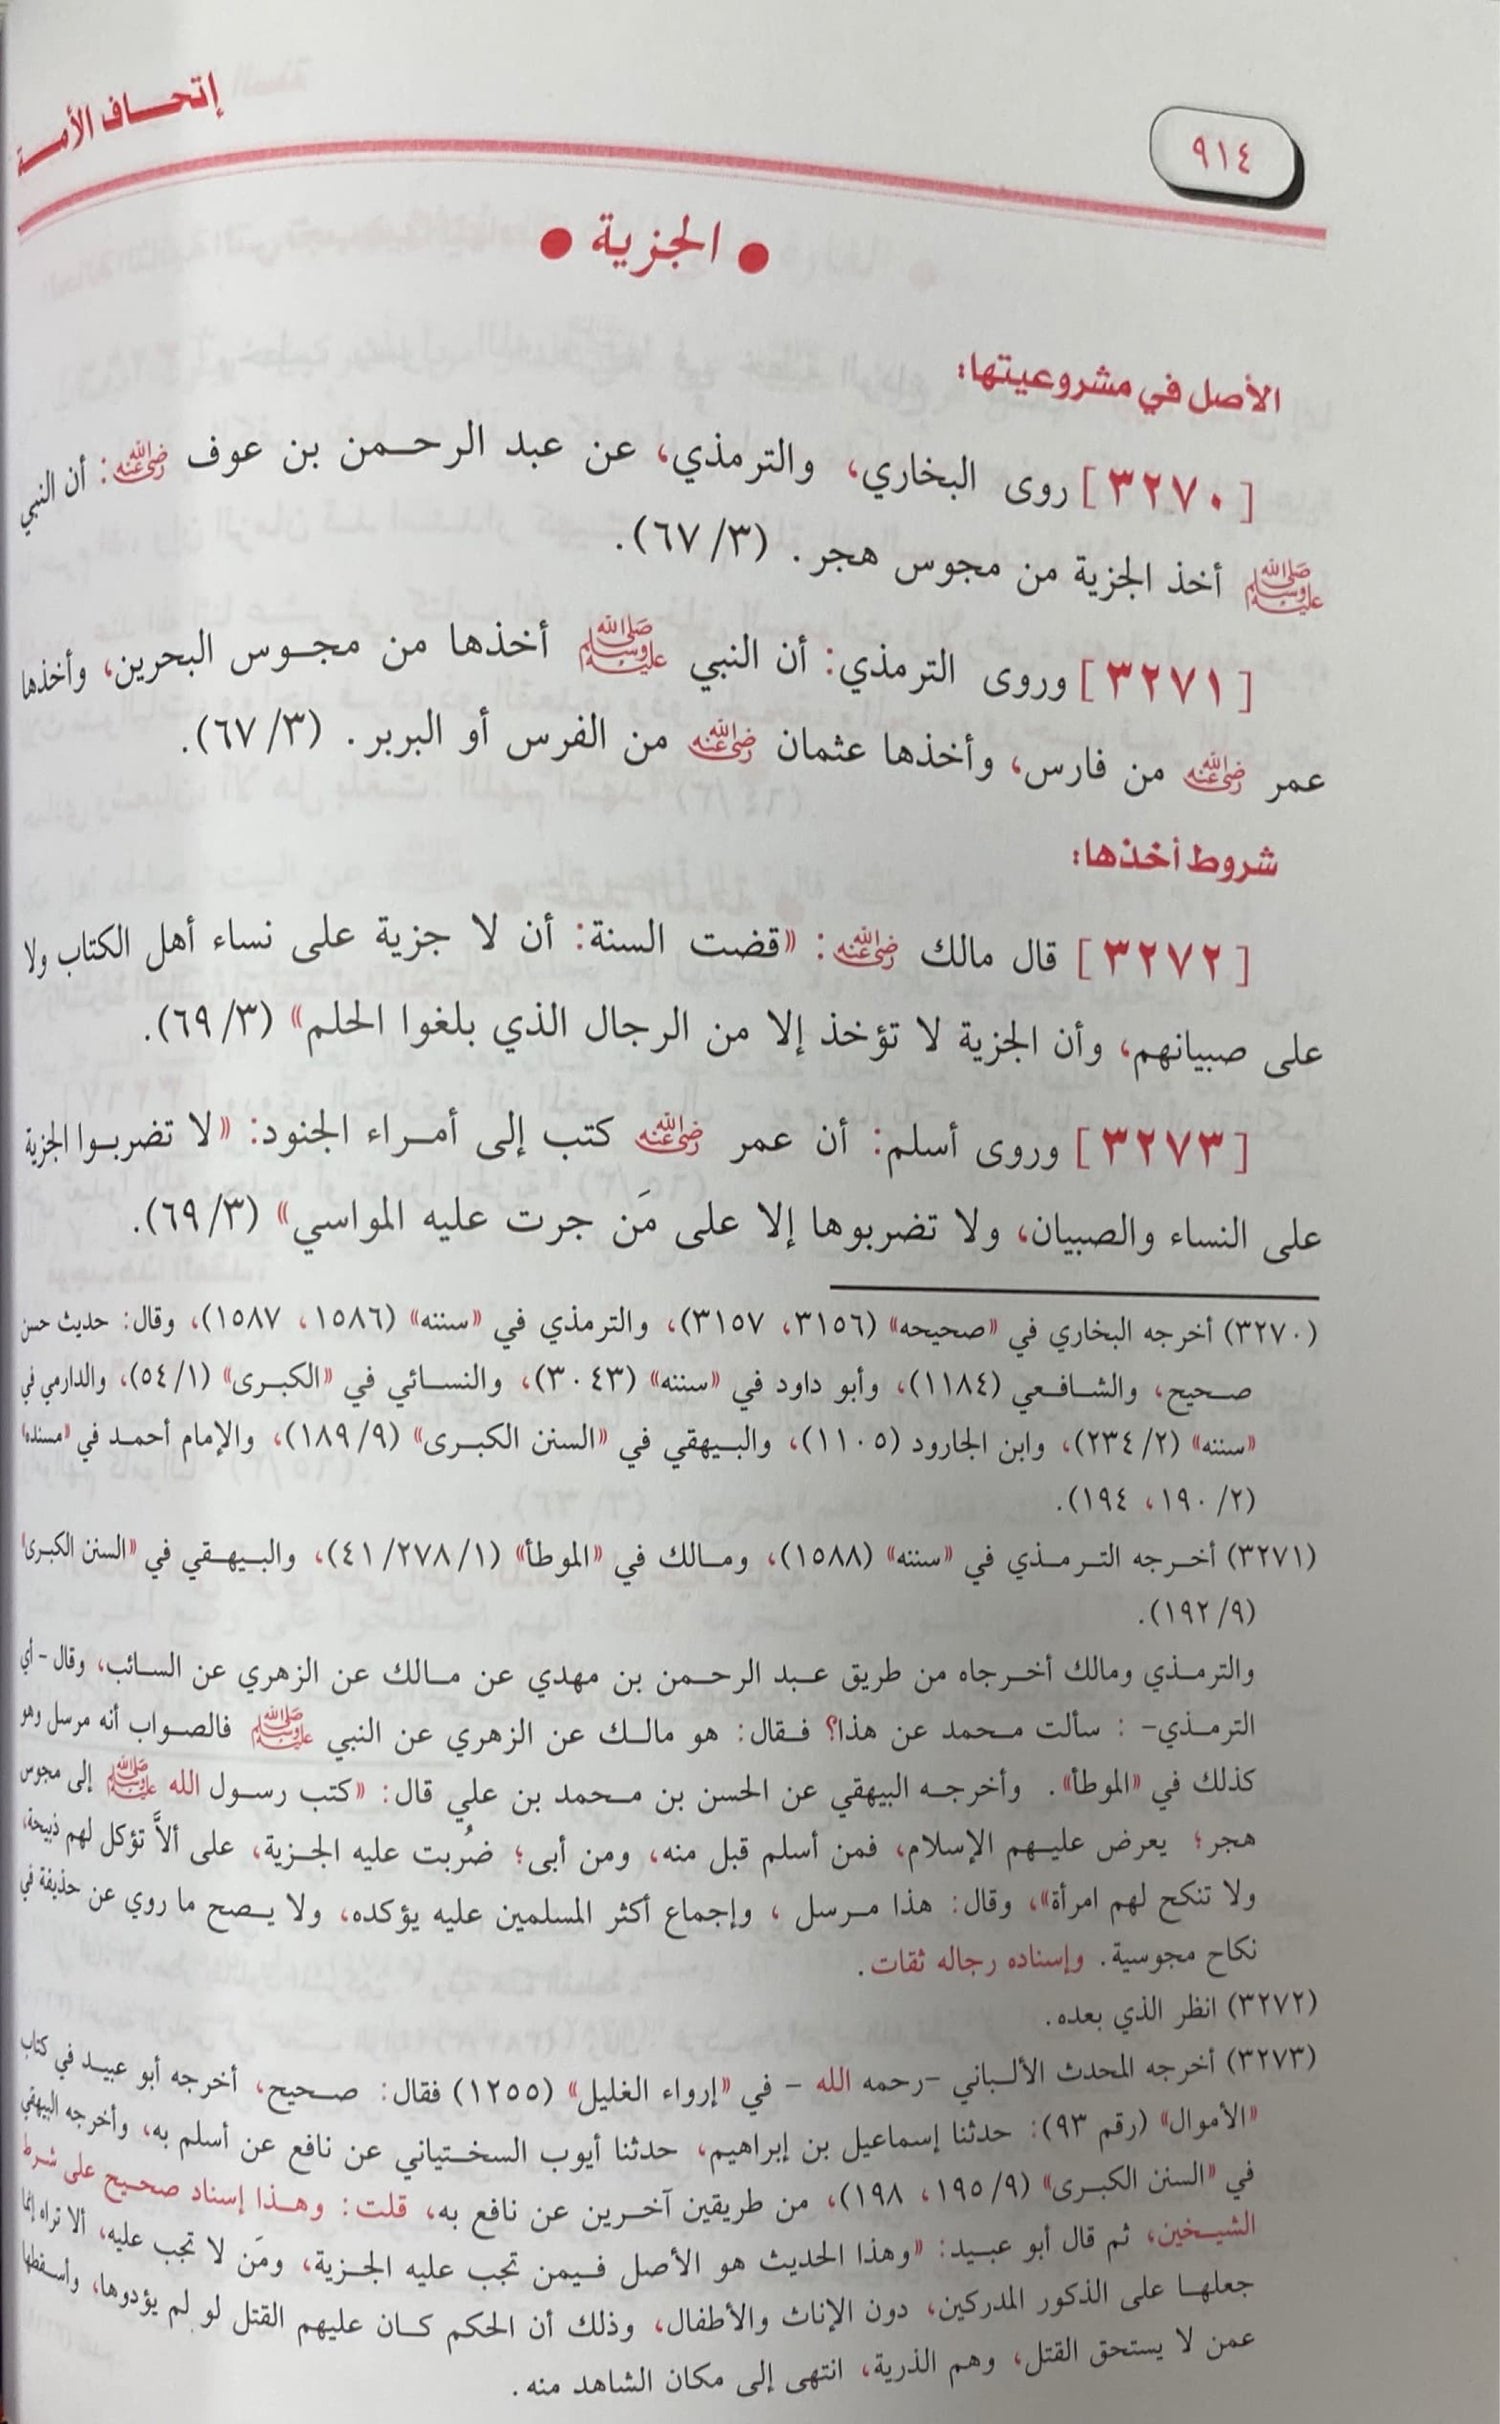 إتحاف الأمة
٩١٤
• الجزية •
الأصل في مشروعيتها:
[٣٢٧٠] روى البخاري، والترمذي، عن عبد الرحمن بن عوف رضي الله عنه: أن النبي
صلى الله عليه وسلم أخذ الجزية من مجوس هجر. (٣/ ٦٧).
[٣٢٧١] وروى الترمذي: أن النبي صلى الله عليه وسلم أخذها من مجوس البحرين، وأخذها
عمر رضي الله عنه من فارس، وأخذها عثمان رضي الله عنه من الفرس أو البربر. (٣/ ٦٧).
شروط أخذها:
[٣٢٧٢] قال مالك رضي الله عنه: «قضت السنة: أن لا جزية على نساء أهل الكتاب ولا
على صبيانهم، وأن الجزية لا تؤخذ إلا من الرجال الذي بلغوا الحلم» (٣/ ٦٩).
[٣٢٧٣] وروى أسلم: أن عمر رضي الله عنه كتب إلى أمراء الجنود: «لا تضربوا الجزية
على النساء والصبيان، ولا تضربوها إلا على مَن جرت عليه المواسي» (٣/ ٦٩).
(٣٢٧٠) أخرجه البخاري في «صحيحه» (٣١٥٦، ٣١٥٧)، والترمذي في «سننه» (١٥٨٦، ١٥٨٧)، وقال: حديث حسن
صحيح، والشافعي (١١٨٤)، وأبو داود في «سننه» (٣٠٤٣)، والنسائي في «الكبرى» (١/ ٥٤)، والدارمي في
«سننه» (٢/ ٢٣٤)، وابن الجارود (١١٠٥)، والبيهقي في «السنن الكبرى» (٩/ ١٨٩)، والإمام أحمد في «مسنده»
(٢/ ١٩٠، ١٩٤).
(٣٢٧١) أخرجه الترمذي في «سننه» (١٥٨٨)، ومالك في «الموطأ» (١/ ٢٧٨/ ٤١)، والبيهقي في «السنن الكبرى»
(٩/ ١٩٢).
والترمذي ومالك أخرجاه من طريق عبد الرحمن بن مهدي عن مالك عن الزهري عن السائب، وقال - أي
الترمذي- : سألت محمد عن هذا؟ فقال: هو مالك عن الزهري عن النبي صلى الله عليه وسلم فالصواب أنه مرسل وهو
كذلك في «الموطأ». وأخرجه البيهقي عن الحسن بن محمد بن علي قال: «كتب رسول الله صلى الله عليه وسلم إلى مجوس
هجر؛ يعرض عليهم الإسلام، فمن أسلم قبل منه، ومن أبى؛ ضُربت عليه الجزية، على ألاَّ تؤكل لهم ذبيحة،
ولا تنكح لهم امرأة»، وقال: هذا مرسل ، وإجماع أكثر المسلمين عليه يؤكده، ولا يصح ما روي عن حذيفة في
نكاح مجوسية. وإسناده رجاله ثقات.
(٣٢٧٢) انظر الذي بعده.
(٣٢٧٣) أخرجه المحدث الألباني -رحمه الله - في «إرواء الغليل» (١٢٥٥) فقال: صحيح، أخرجه أبو عبيد في كتاب
«الأموال» (رقم ٩٣): حدثنا إسماعيل بن إبراهيم، حدثنا أيوب السختياني عن نافع عن أسلم به، وأخرجه البيهقي
في «السنن الكبرى» (٩/ ١٩٥، ١٩٨)، من طريقين آخرين عن نافع به، قلت: وهذا إسناد صحيح على شرط
الشيخين، ثم قال أبو عبيد: «وهذا الحديث هو الأصل فيمن تجب عليه الجزية، ومَن لا تجب عليه، ألا تراه إنما
جعلها على الذكور المدركين، دون الإناث والأطفال، وذلك أن الحكم كان عليهم القتل لو لم يؤدوها، وأسقطها
عمن لا يستحق القتل، وهم الذرية، انتهى إلى مكان الشاهد منه.